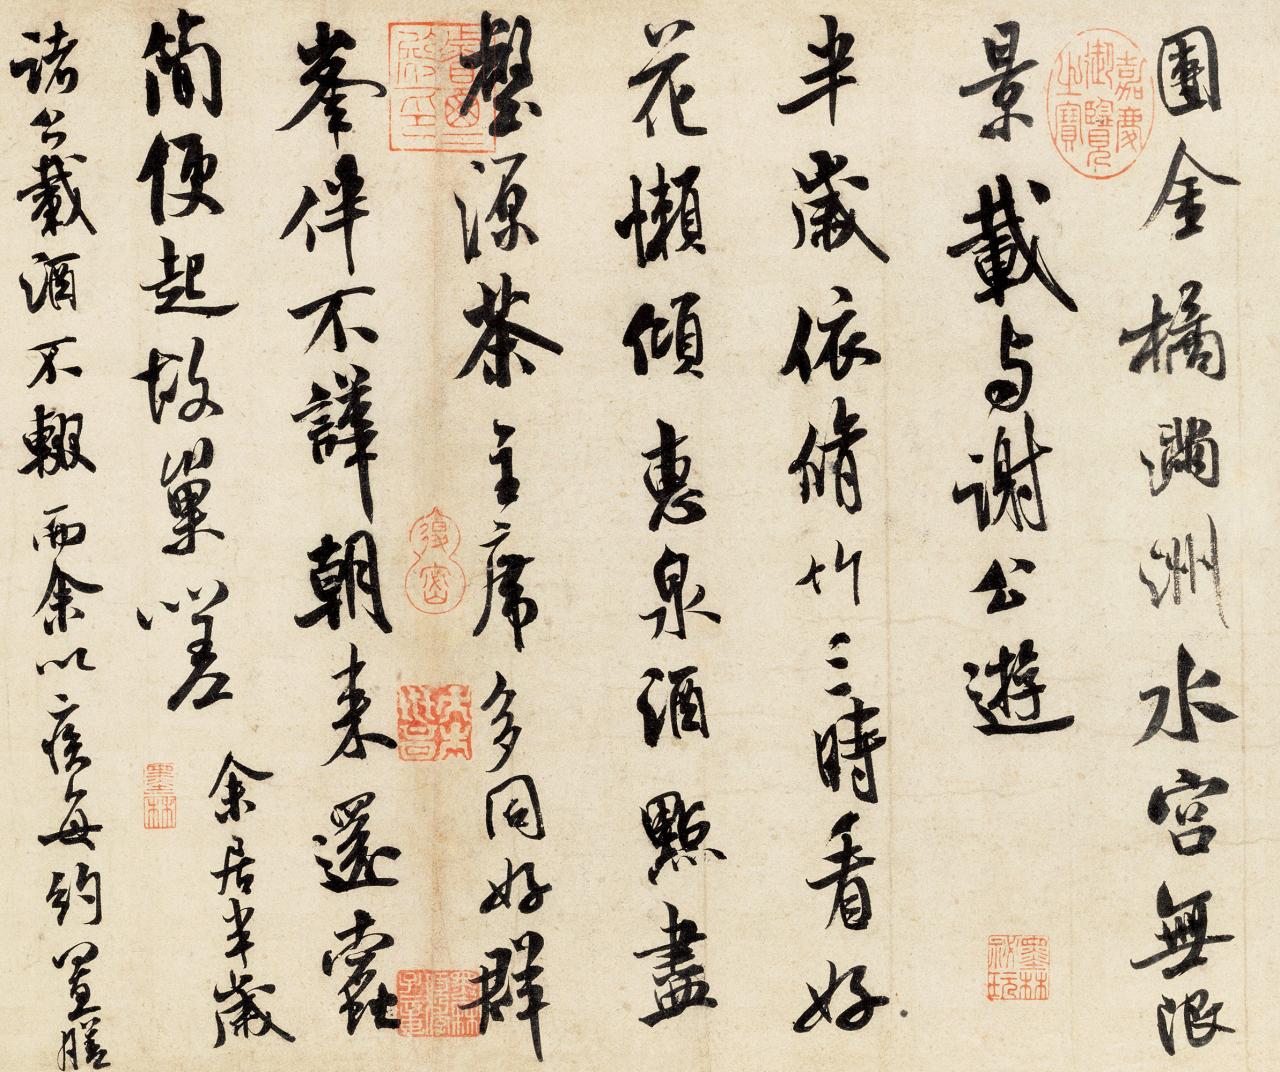 團金橘滿洲水宮無限
景載与謝公遊
半歲依脩竹三時看好
花懶傾惠泉酒點盡
壑源茶主席多同好群
峯伴不譁朝来還蠹
簡便起故巢嗟
余居半歲
諸公載酒不輟而余以疾每約置膳
嘉慶御覽之寶
墨林秘玩
墨林